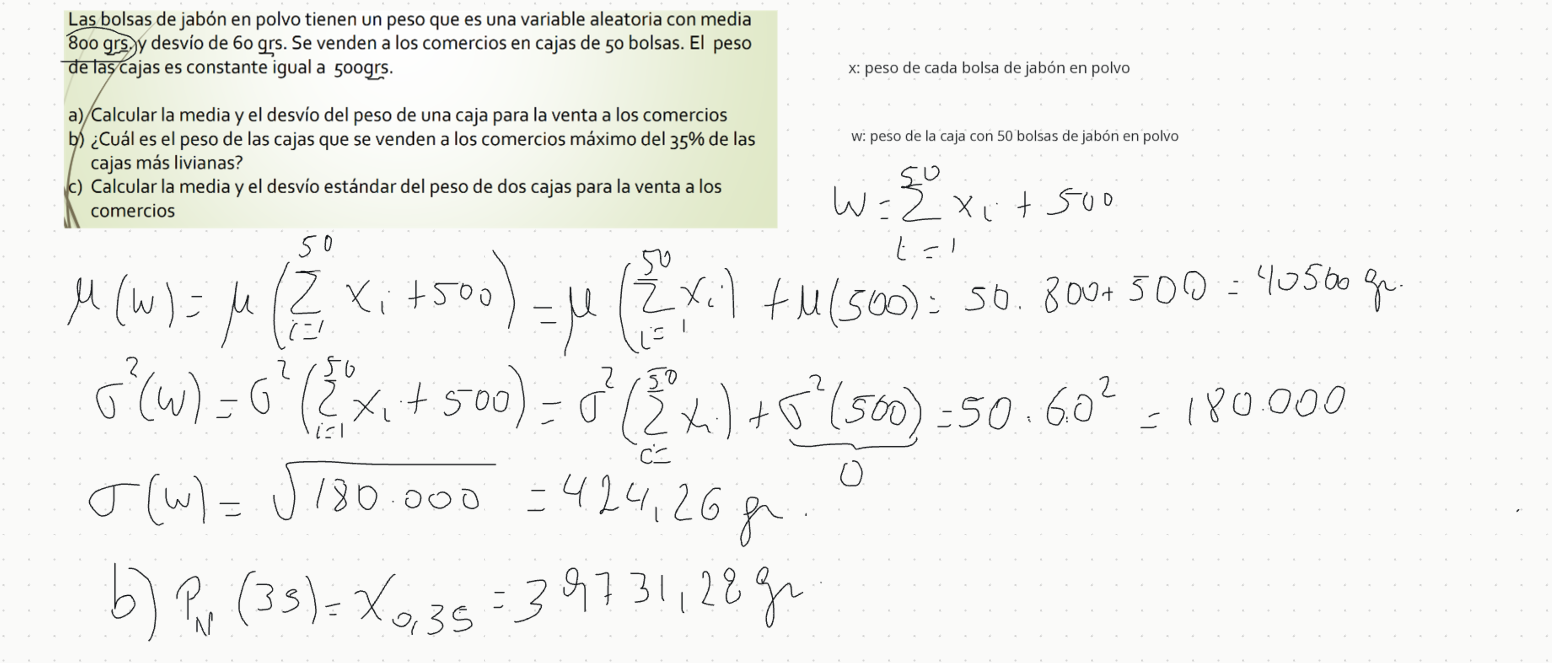 Las bolsas de jabón en polvo tienen un peso que es una variable aleatoria con media
800 grs. y desvío de 60 grs. Se venden a los comercios en cajas de 50 bolsas. El peso
de las cajas es constante igual a 500grs.
a) Calcular la media y el desvío del peso de una caja para la venta a los comercios
b) ¿Cuál es el peso de las cajas que se venden a los comercios máximo del 35% de las
cajas más livianas?
c) Calcular la media y el desvío estándar del peso de dos cajas para la venta a los
comercios
x: peso de cada bolsa de jabón en polvo
w: peso de la caja con 50 bolsas de jabón en polvo
W = ∑_{i=1}^{50} x_i + 500
μ(w) = μ(∑_{i=1}^{50} x_i + 500) = μ(∑_{i=1}^{50} x_i) + μ(500) = 50. 800 + 500 = 40500 gr.
σ²(w) = σ²(∑_{i=1}^{50} x_i + 500) = σ²(∑_{i=}^{50} x_i) + σ²(500) = 50 . 60² = 180.000
0
σ(w) = √180.000 = 424,26 gr.
b) P_N (35) = X_{0,35} = 39731,28 gr